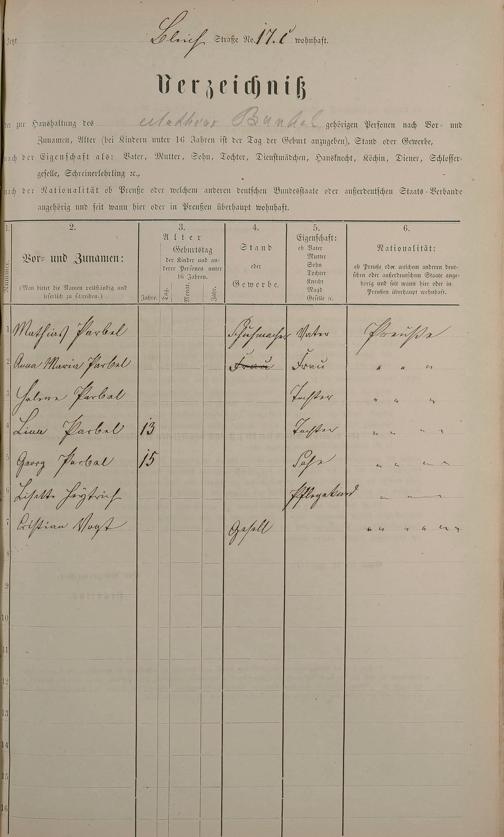 Jetzt Bleich Straße No. 17.c wohnhaft.
Verzeichniß
der zur Haushaltung des Mathias gehörigen Personen nach Vor- und
Zunamen, Alter (bei Kindern unter 16 Jahren ist der Tag der Geburt anzugeben), Stand oder Gewerbe,
nach der Eigenschaft als: Vater, Mutter, Sohn, Tochter, Dienstmädchen, Hausknecht, Köchin, Diener, Schlosser-
geselle, Schreinerlehrling ꝛc.,
nach der Nationalität ob Preuße oder welchem anderen deutschen Bundesstaate oder außerdeutschen Staats-Verbande
angehörig und seit wann hier oder in Preußen überhaupt wohnhaft.
1. 2. 3. 4. 5. 6.
Nummer.
Vor- und Zunamen:
(Man bittet die Namen vollständig und
leserlich zu schreiben.)
Alter
Geburtstag
der Kinder und an-
derer Personen unter
16 Jahren.
Jahre. Tag. Monat. Jahr.
Stand
oder
Gewerbe.
Eigenschaft:
ob Vater
Mutter
Sohn
Tochter
Knecht
Magd
Geselle ꝛc.
Nationalität:
ob Preuße oder welchem anderen deut-
schen oder außerdeutschen Staate ange-
hörig und seit wann hier oder in
Preußen überhaupt wohnhaft.
1 Mathias Parbel Schuhmacher Vater Preuße
2 Anna Maria Parbel Frau Frau " " "
3 Helene Parbel Tochter " " "
4 Lina Parbel 13 Tochter " " " "
5 Georg Parbel 15 Sohn " " " "
6 Lisette Pflegekind " " "
7 Cristian Vogt Gesell " " " "
8
9
10
11
12
13
14
15
16